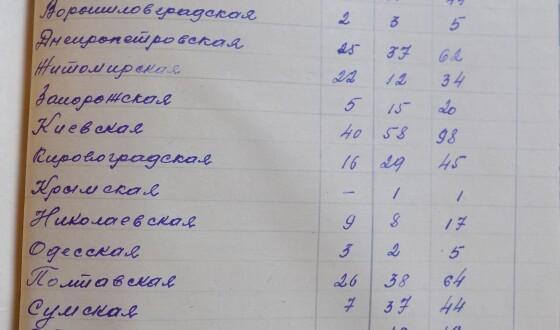 Ворошиловградская 2 3 5
Днепропетровская 25 37 62
Житомирская 22 12 34
Запорожская 5 15 20
Киевская 40 58 98
Кировоградская 16 29 45
Крымская – 1 1
Николаевская 9 8 17
Одесская 3 2 5
Полтавская 26 38 64
Сумская 7 37 44